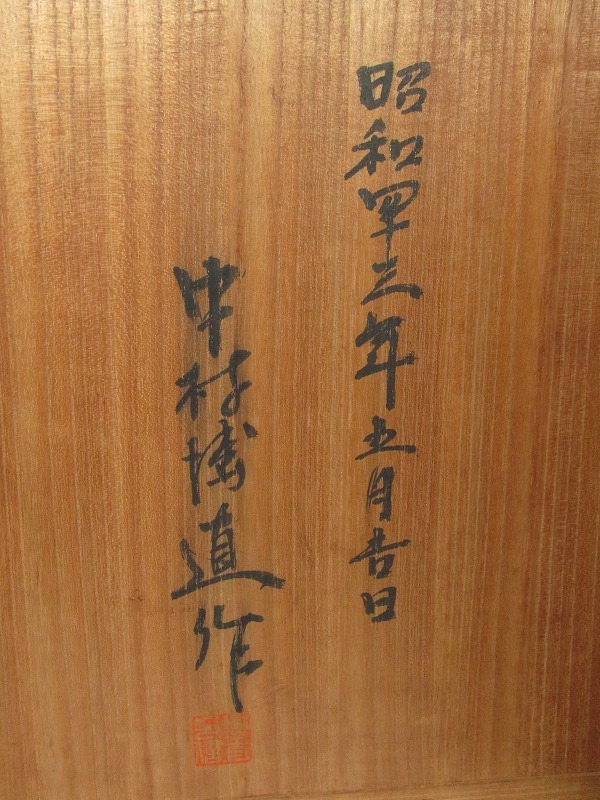 昭和四十三年五月吉日
中村博道作